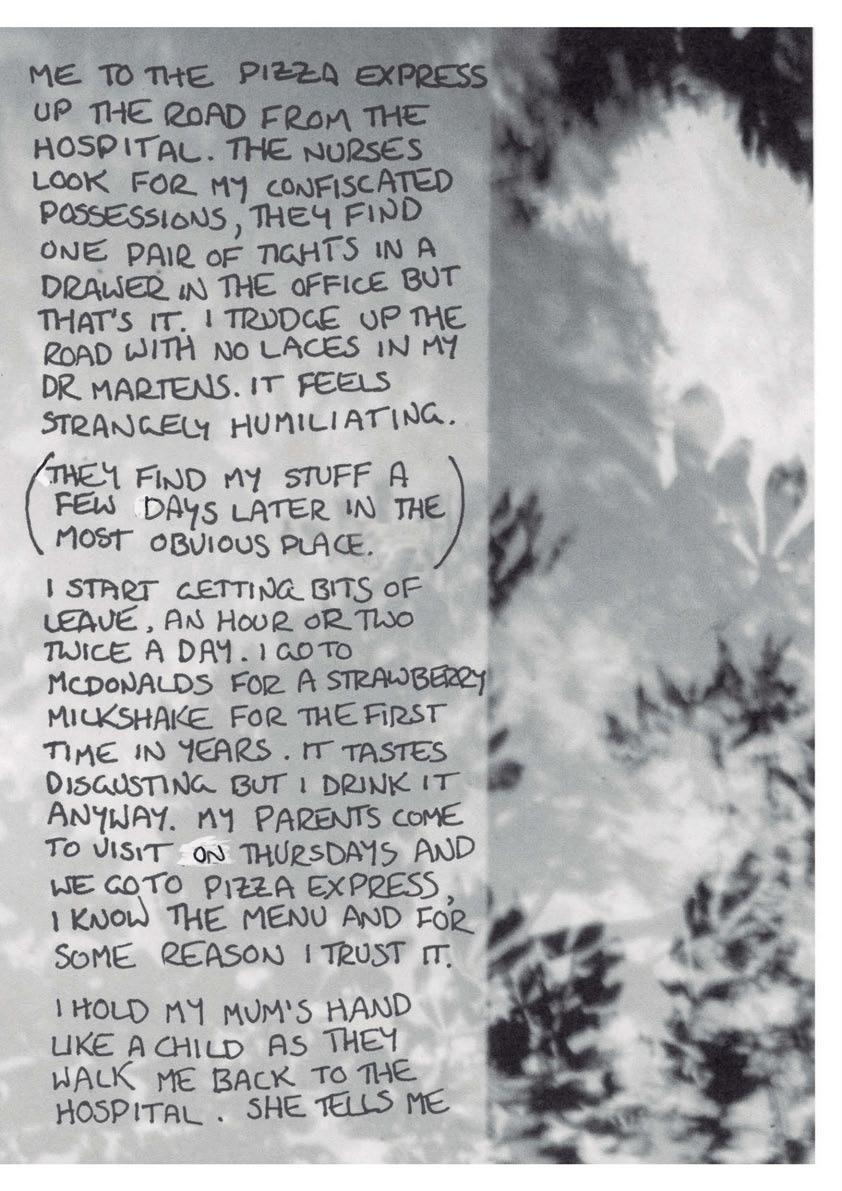 ME TO THE PIZZA EXPRESS
UP THE ROAD FROM THE
HOSPITAL. THE NURSES
LOOK FOR MY CONFISCATED
POSSESSIONS, THEY FIND
ONE PAIR OF TIGHTS IN A
DRAWER IN THE OFFICE BUT
THAT'S IT. I TRUDGE UP THE
ROAD WITH NO LACES IN MY
DR MARTENS. IT FEELS
STRANGELY HUMILIATING.
(THEY FIND MY STUFF A
FEW DAYS LATER IN THE
MOST OBVIOUS PLACE.)
I START GETTING BITS OF
LEAVE, AN HOUR OR TWO
TWICE A DAY. I GO TO
MCDONALDS FOR A STRAWBERRY
MILKSHAKE FOR THE FIRST
TIME IN YEARS. IT TASTES
DISGUSTING BUT I DRINK IT
ANYWAY. MY PARENTS COME
TO VISIT ON THURSDAYS AND
WE GO TO PIZZA EXPRESS,
I KNOW THE MENU AND FOR
SOME REASON I TRUST IT.
I HOLD MY MUM'S HAND
LIKE A CHILD AS THEY
WALK ME BACK TO THE
HOSPITAL. SHE TELLS ME